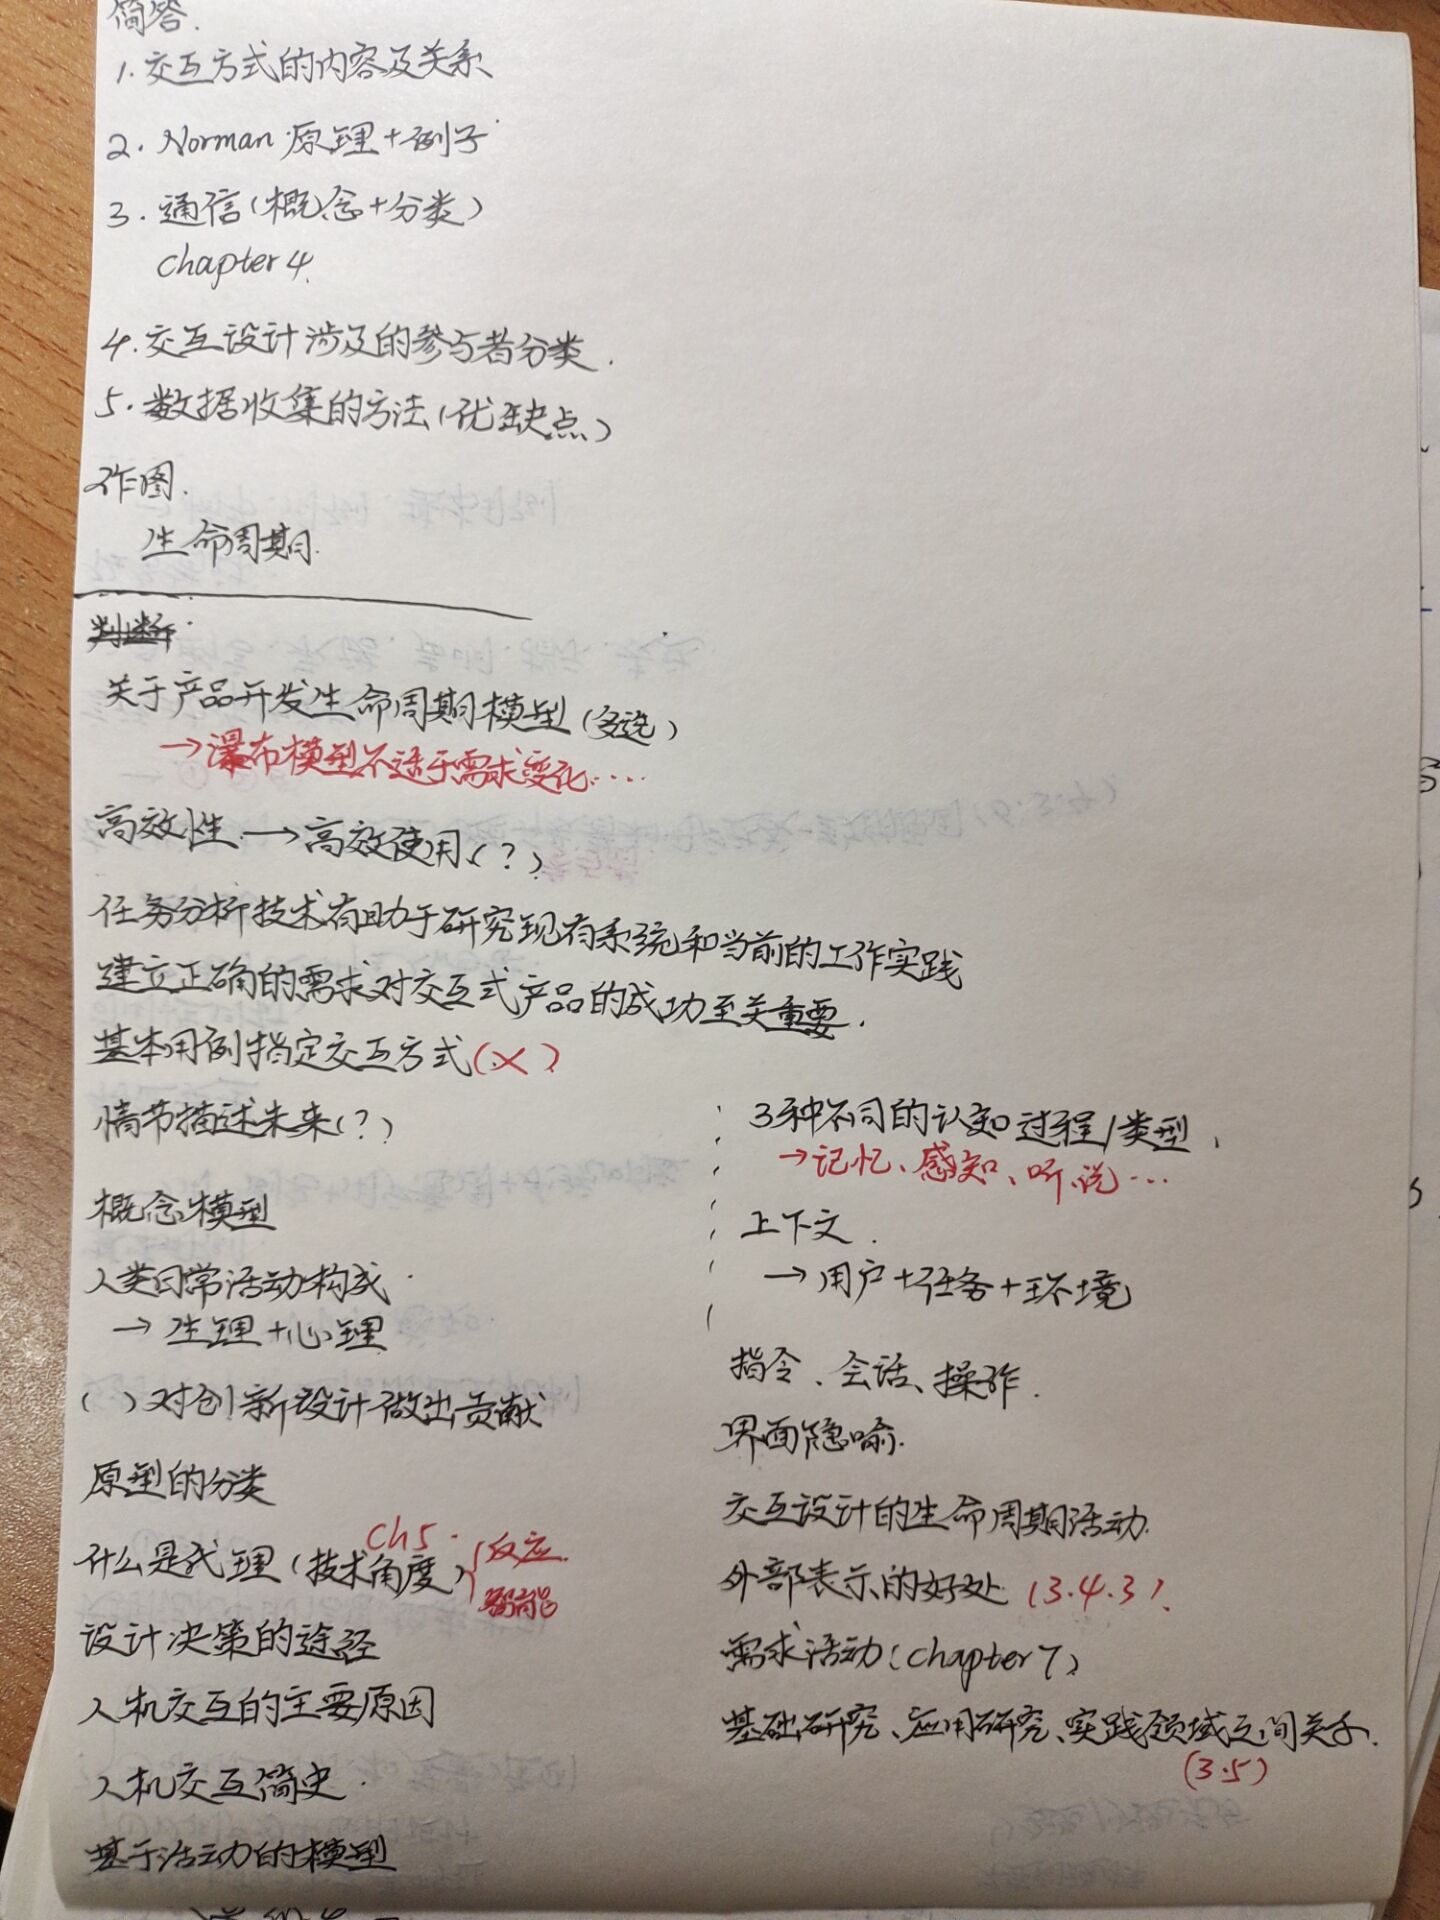 简答.
1.交互方式的内容及关系
2. Norman 原理+例子
3.通信(概念+分类)
chapter 4.
4.交互设计涉及的参与者分类.
5.数据收集的方法(优缺点)
作图.
生命周期.
判断:
关于产品开发生命周期模型(多选)
→瀑布模型不适于需求变化....
高效性→高效使用(?)
任务分析技术有助于研究现有系统和当前的工作实践
建立正确的需求对交互式产品的成功至关重要.
基本用例指定交互方式(×)
情节描述未来(?)
概念模型
人类日常活动构成.
→生理+心理
( )对创新设计做出贡献
原型的分类
什么是代理(技术角度) Ch5. {反应.
设计决策的途径
人机交互的主要原因
人机交互简史.
基于活动的模型
3种不同的认知过程/类型,
→记忆、感知、听、说...
上下文.
→用户+任务+环境
指令、会话、操作.
界面隐喻.
交互设计的生命周期活动.
外部表示的好处.(3.4.3).
需求活动(chapter 7)
基础研究、应用研究、实践领域之间关系.
(3.5)